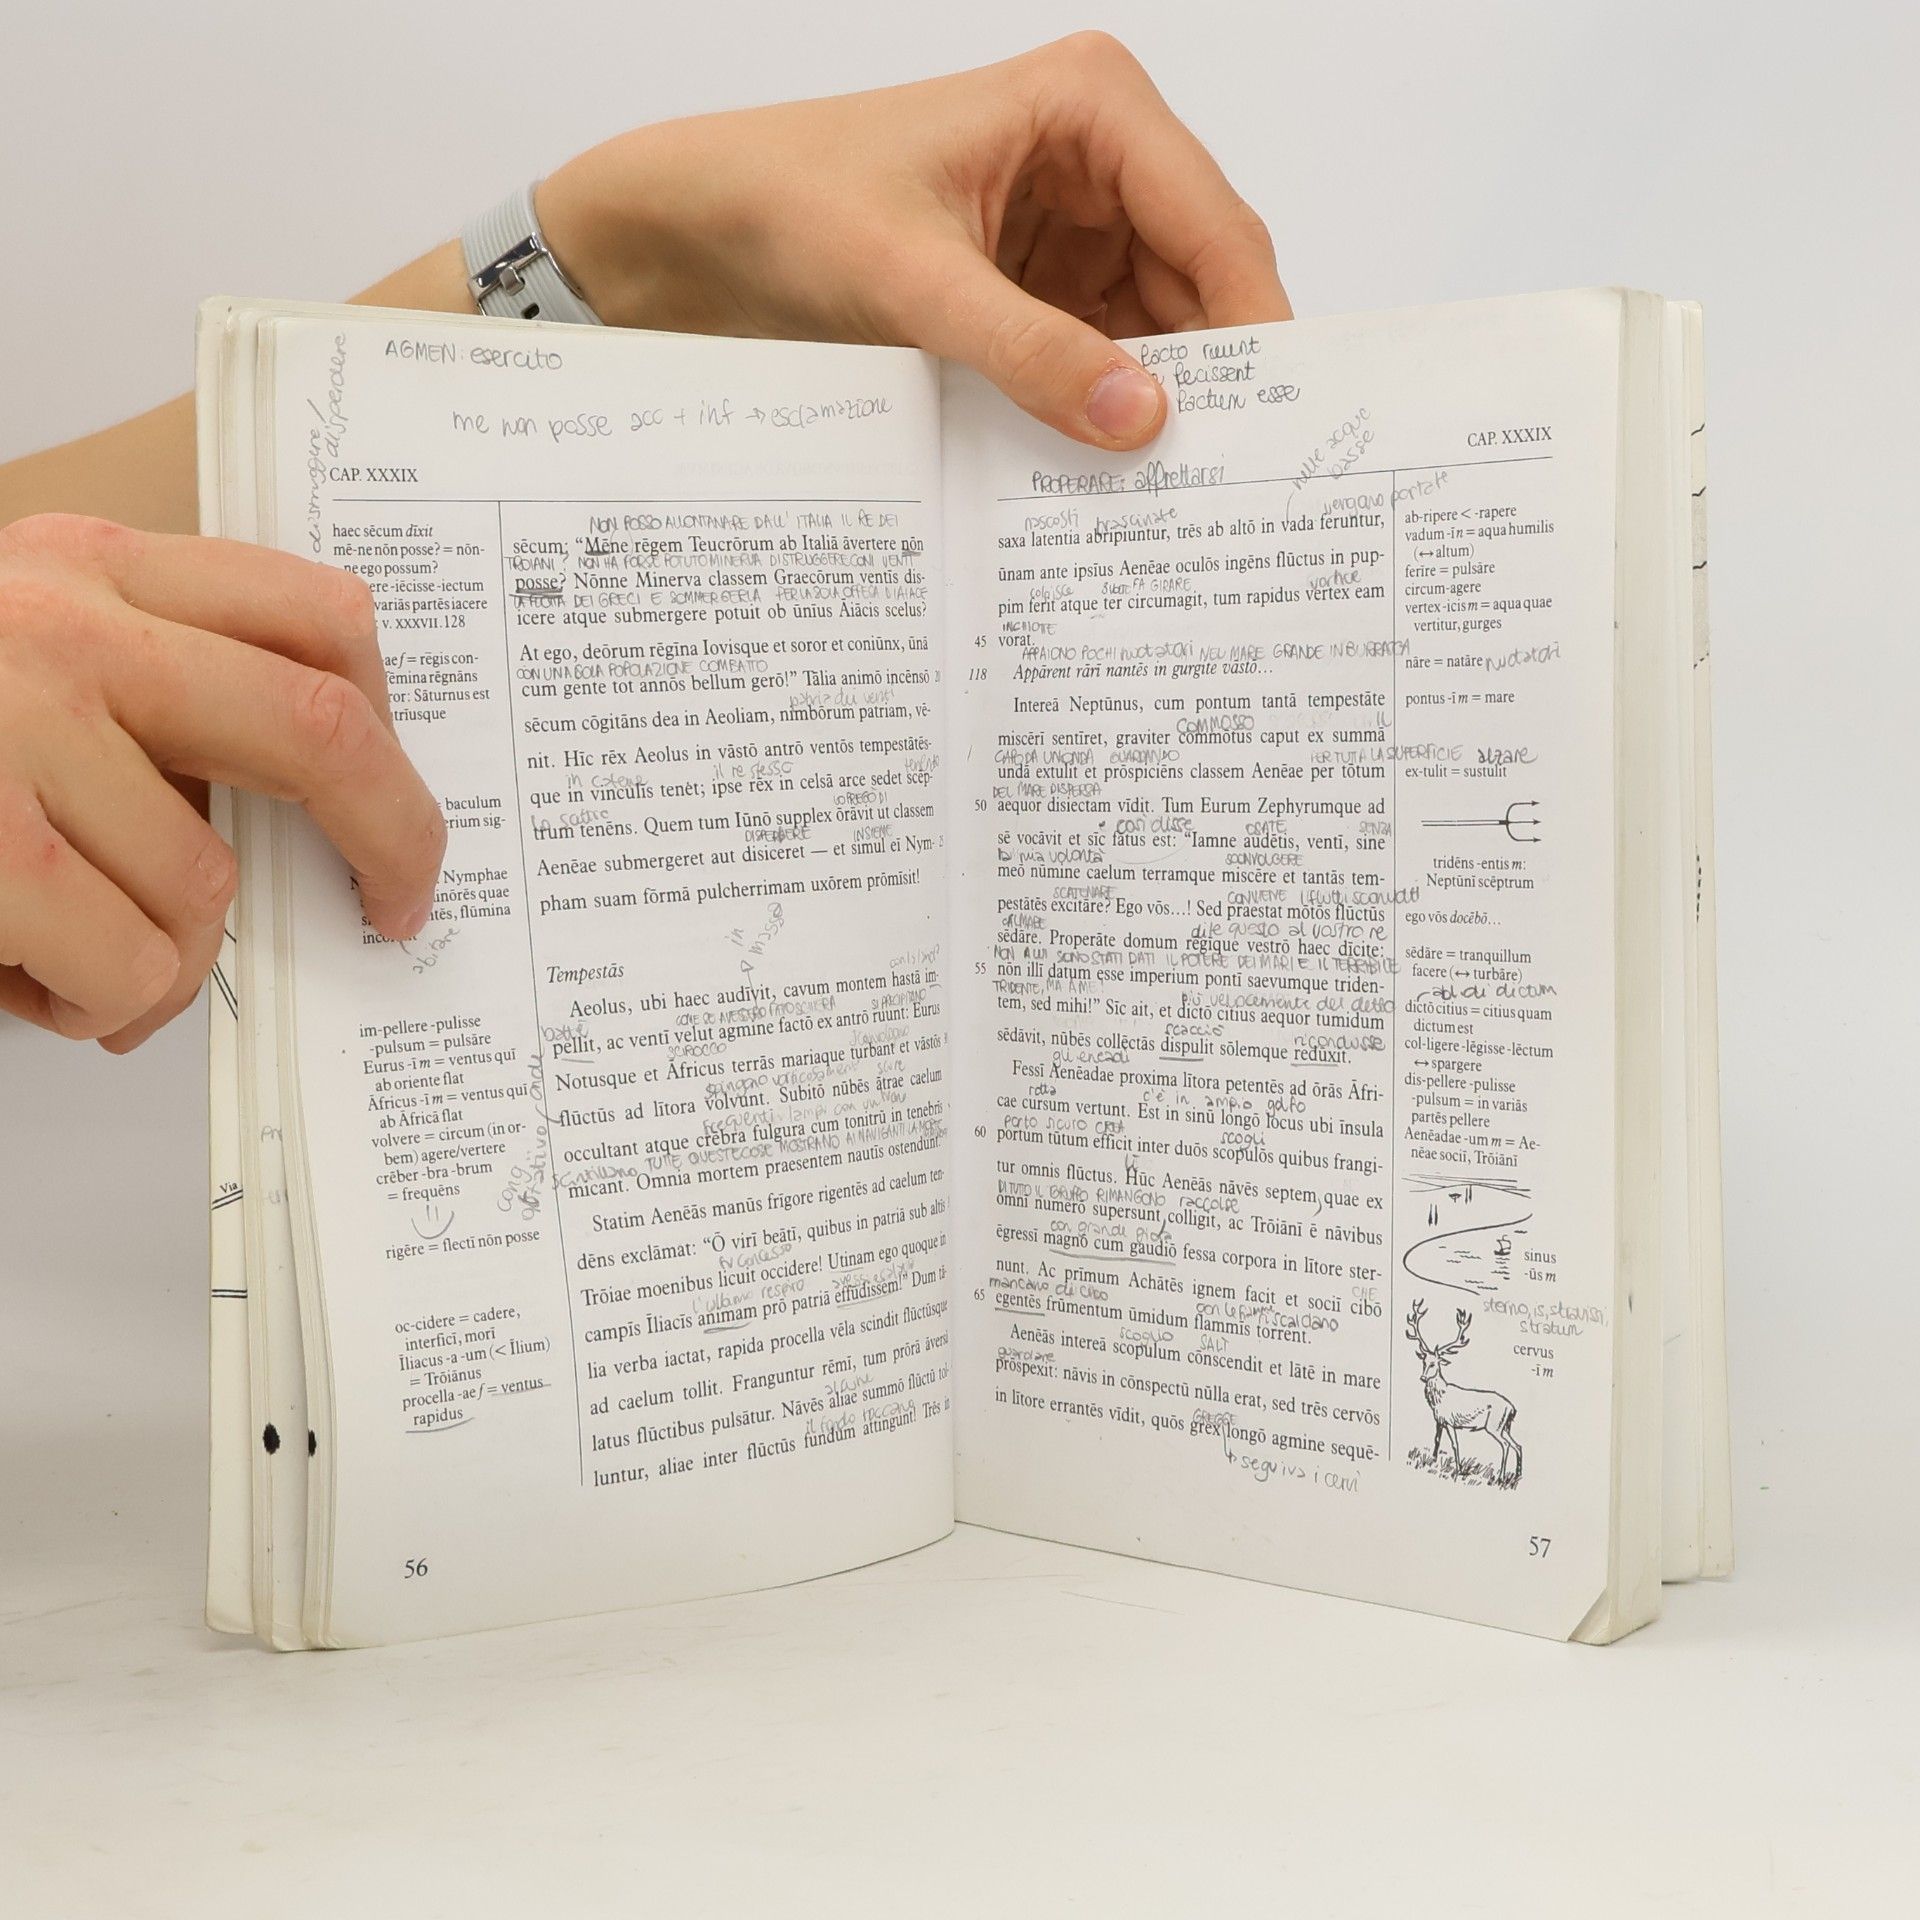 AGMEN: esercito
me non posse acc + inf → esclamazione
distruggere/
disperdere
CAP. XXXIX
haec sēcum dīxit
mē-ne nōn posse? = nōn-
ne ego possum?
ere -iēcisse -iectum
variās partēs iacere
v. XXXVII.128
-ae f = rēgis con-
fēmina rēgnāns
ror: Sāturnus est
trīusque
baculum
erium sig-
Nymphae
inōrēs quae
tēs, flūmina
abitare
im-pellere -pulisse
-pulsum = pulsāre
Eurus -ī m = ventus quī
ab oriente flat
Āfricus -ī m = ventus quī
ab Āfricā flat
volvere = circum (in or-
bem) agere/vertere
crēber -bra -brum
= frequēns
rigēre = flectī nōn posse
oc-cidere = cadere,
interficī, morī
Īliacus -a -um (< Īlium)
= Trōiānus
procella -ae f = ventus
rapidus
NON POSSO ALLONTANARE DALL' ITALIA IL RE DEI
sēcum: “Mēne rēgem Teucrōrum ab Italiā āvertere nōn
TROIANI? NON HA FORSE POTUTO MINERVA DISTRUGGERE CON I VENTI
posse? Nōnne Minerva classem Graecōrum ventīs dis-
LA FLOTTA DEI GRECI E SOMMERGERLA PER LA SOLA OFFESA DI AIACE
icere atque submergere potuit ob ūnīus Aiācis scelus?
At ego, deōrum rēgīna Iovisque et soror et coniūnx, ūnā
CON UNA SOLA POPOLAZIONE COMBATTO
cum gente tot annōs bellum gerō!” Tālia animō incēnsō
patria dei venti
sēcum cōgitāns dea in Aeoliam, nimbōrum patriam, vē-
nit. Hīc rēx Aeolus in vāstō antrō ventōs tempestātēs-
in catene il re stesso tenendo
que in vinculīs tenet; ipse rēx in celsā arce sedet scēp-
lo scettro LO PREGÒ DI
trum tenēns. Quem tum Iūnō supplex ōrāvit ut classem
DISPERDERE INSIEME
Aenēae submergeret aut disiceret — et simul eī Nym-
pham suam fōrmā pulcherrimam uxōrem prōmīsit!
in massa
Tempestās
Aeolus, ubi haec audīvit, cavum montem hastā im-
batté COME SE AVESSERO FATTO SCHIERA SI PRECIPITANO
pellit, ac ventī velut agmine factō ex antrō ruunt: Eurus
SCIROCCO
Notusque et Āfricus terrās mariaque turbant et vāstōs
spingono vorticosamente scure
flūctūs ad lītora volvunt. Subitō nūbēs ātrae caelum
frequenti lampi con un tuono
occultant atque crēbra fulgura cum tonitrū in tenebrīs
scintillano TUTTE QUESTE COSE MOSTRANO AI NAVIGANTI LA MORTE
micant. Omnia mortem praesentem nautīs ostendunt.
Statim Aenēās manūs frīgore rigentēs ad caelum ten-
dēns exclāmat: “Ō virī beātī, quibus in patriā sub altīs
fu concesso
Trōiae moenibus licuit occidere! Utinam ego quoque in
l'ultimo respiro
campīs Īliacīs animam prō patriā effūdissem!” Dum tā-
lia verba iactat, rapida procella vēla scindit flūctūsque
ad caelum tollit. Franguntur rēmī, tum prōrā āversā
latus flūctibus pulsātur. Nāvēs aliae summō flūctū tol-
il fondo toccano
luntur, aliae inter flūctūs fundum attingunt! Trēs in
cong ottativo
onde
Via
56
facto ruunt
fecissent
factum esse
CAP. XXXIX
PROPERARE: affrettarsi
nelle acque
basse
nascosti trascinate vengano portate
saxa latentia abripiuntur, trēs ab altō in vada feruntur,
ūnam ante ipsīus Aenēae oculōs ingēns flūctus in pup-
colpisce FA GIRARE vortice
pim ferit atque ter circumagit, tum rapidus vertex eam
INGHIOTTE
45 vorat.
APPAIONO POCHI nuotatori NEL MARE GRANDE IN BURRASCA
118 Appārent rārī nantēs in gurgite vāstō...
Intereā Neptūnus, cum pontum tantā tempestāte
COMMOSSO
miscērī sentīret, graviter commōtus caput ex summā
CAPO DA UN'ONDA GUARDANDO PER TUTTA LA SUPERFICIE
undā extulit et prōspiciēns classem Aenēae per tōtum
DEL MARE DISPERSA
50 aequor disiectam vīdit. Tum Eurum Zephyrumque ad
così disse OSATE SENZA
sē vocāvit et sīc fātus est: “Iamne audētis, ventī, sine
la mia volontà SCONVOLGERE
meō nūmine caelum terramque miscēre et tantās tem-
SCATENARE CONVIENE i flutti sconvolti
pestātēs excitāre? Ego vōs...! Sed praestat mōtōs flūctūs
CALMARE dite questo al vostro re
sēdāre. Properāte domum rēgique vestrō haec dīcite:
NON A LUI SONO STATI DATI IL POTERE DEI MARI E IL TERRIBILE
55 nōn illī datum esse imperium pontī saevumque triden-
TRIDENTE, MA A ME!
tem, sed mihi!” Sīc ait, et dictō citius aequor tumidum
più velocemente del detto
scacciò ricondusse
sēdāvit, nūbēs collēctās dispulit sōlemque redūxit.
gli eneadi
Fessī Aenēadae proxima lītora petentēs ad ōrās Āfri-
rotta c'è in ampio golfo
cae cursum vertunt. Est in sinū longō locus ubi īnsula
porto sicuro CREA scogli
60 portum tūtum efficit inter duōs scopulōs quibus frangi-
lì
tur omnis flūctus. Hūc Aenēās nāvēs septem, quae ex
DI TUTTO IL GRUPPO RIMANGONO raccolse
omnī numerō supersunt, colligit, ac Trōiānī ē nāvibus
con grande gioia
ēgressī magnō cum gaudiō fessa corpora in lītore ster-
nunt. Ac prīmum Achātēs ignem facit et sociī cibō
mancano di cibo con le fiamme scaldano CHE
65 egentēs frūmentum ūmidum flammīs torrent.
scoglio SALÌ
Aenēās intereā scopulum cōnscendit et lātē in mare
guardare
prōspexit: nāvis in cōnspectū nūlla erat, sed trēs cervōs
in lītore errantēs vīdit, quōs grex longō agmine sequē-
GREGGE
→ seguiva i cervi
ab-ripere < -rapere
vadum -ī n = aqua humilis
(↔ altum)
ferīre = pulsāre
circum-agere
vertex -icis m = aqua quae
vertitur, gurges
nāre = natāre nuotatori
pontus -ī m = mare
alzare
ex-tulit = sustulit
tridēns -entis m:
Neptūnī scēptrum
ego vōs docēbō...
sēdāre = tranquillum
facere (↔ turbāre)
abl. di dictum
dictō citius = citius quam
dictum est
col-ligere -lēgisse -lēctum
↔ spargere
dis-pellere -pulisse
-pulsum = in variās
partēs pellere
Aenēadae -um m = Ae-
nēae sociī, Trōiānī
sinus
-ūs m
sterno, is, stravi,
stratum
cervus
-ī m
57